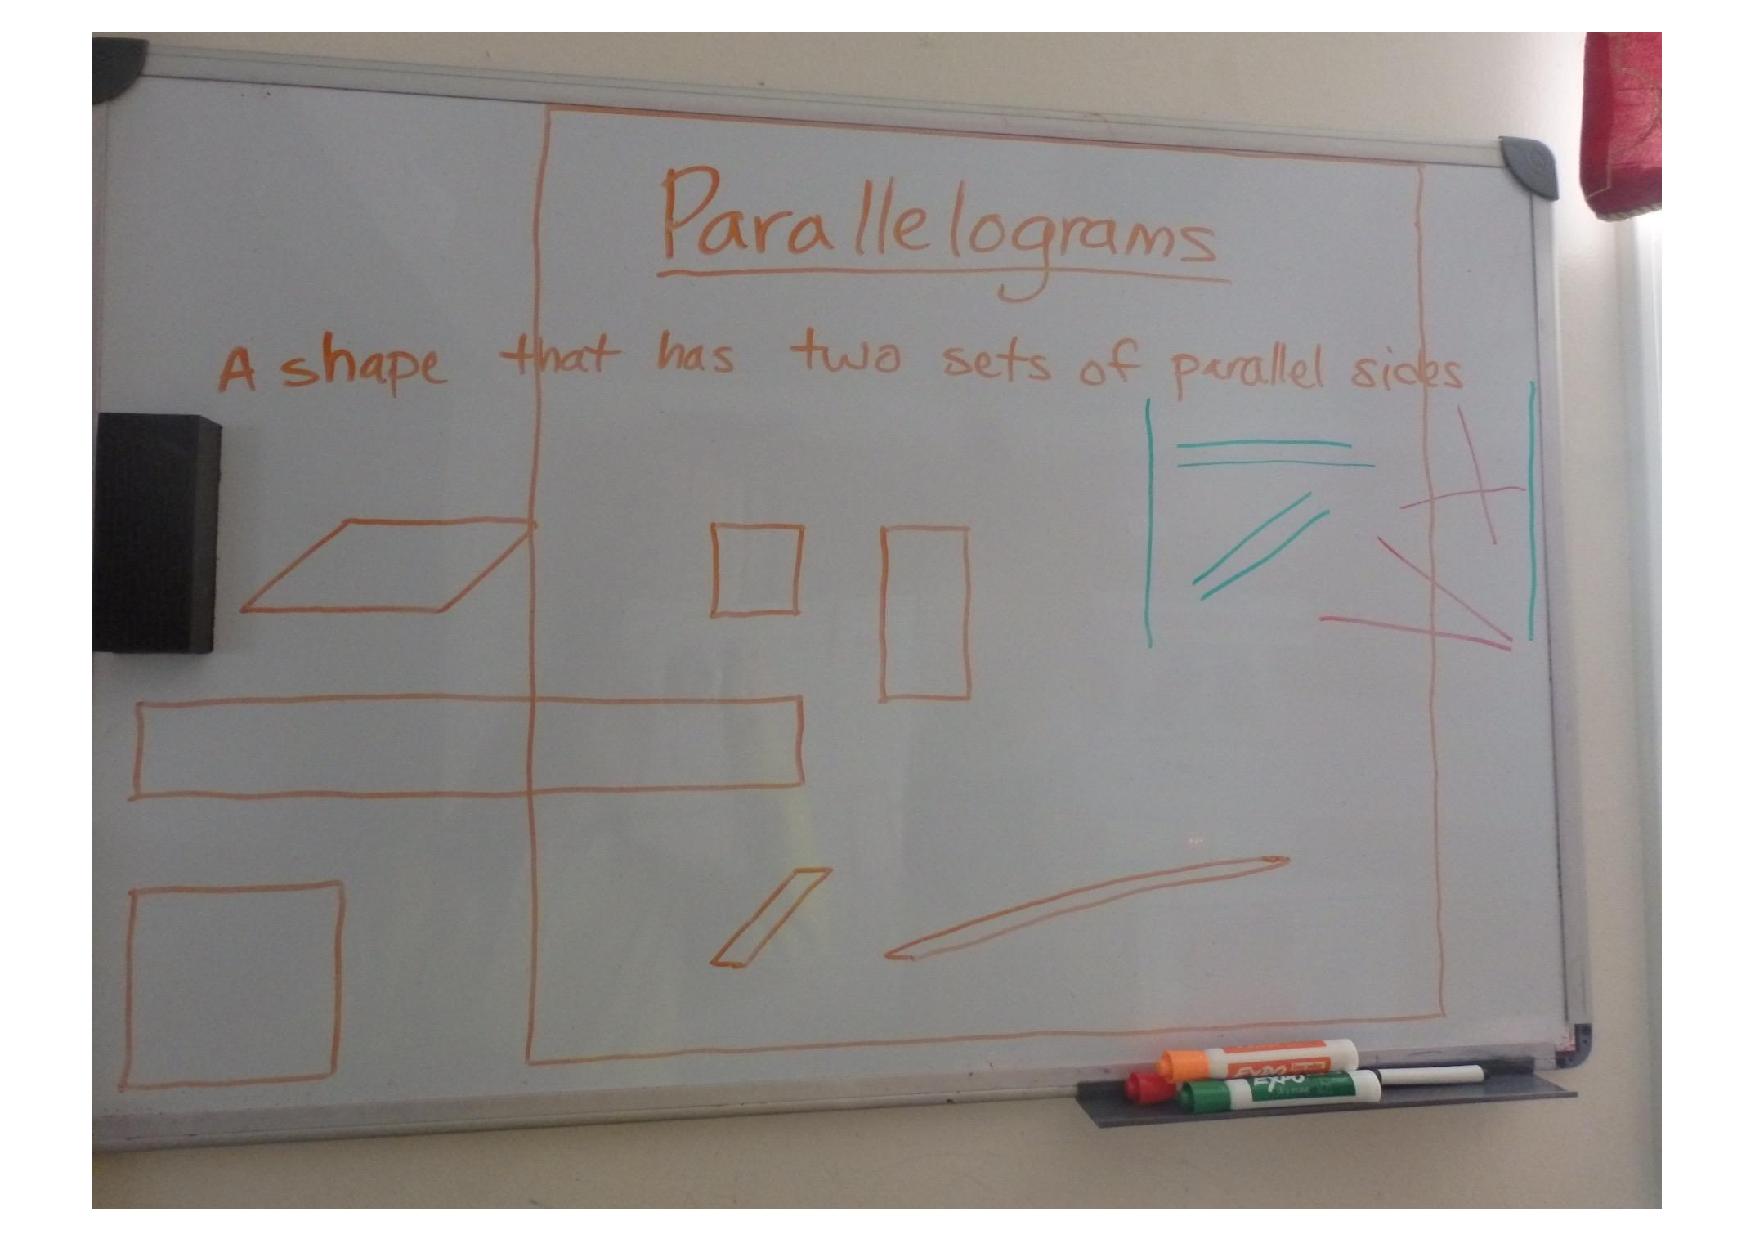 Parallelograms
A shape that has two sets of parallel sides
EXPO
EXPO